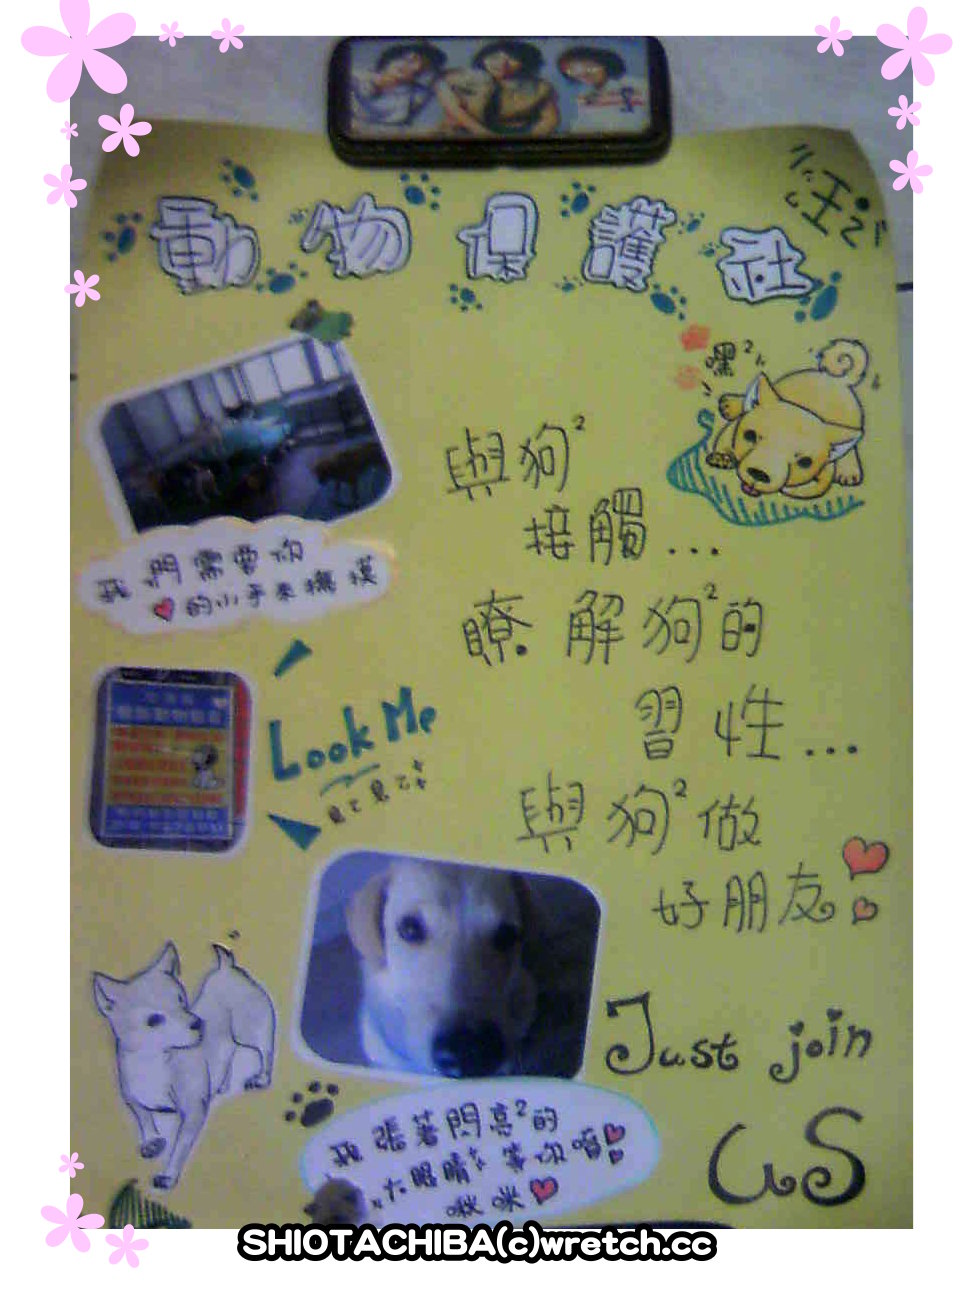 動物保護社
汪²
嘿²
與狗²
接觸...
瞭解狗²的
習性...
與狗²做
好朋友
我們需要你
的小手來撫摸
Look Me
Just join
us
我張著閃亮²的
大眼睛等你唷
啾咪
SHIOTACHIBA(c)wretch.cc